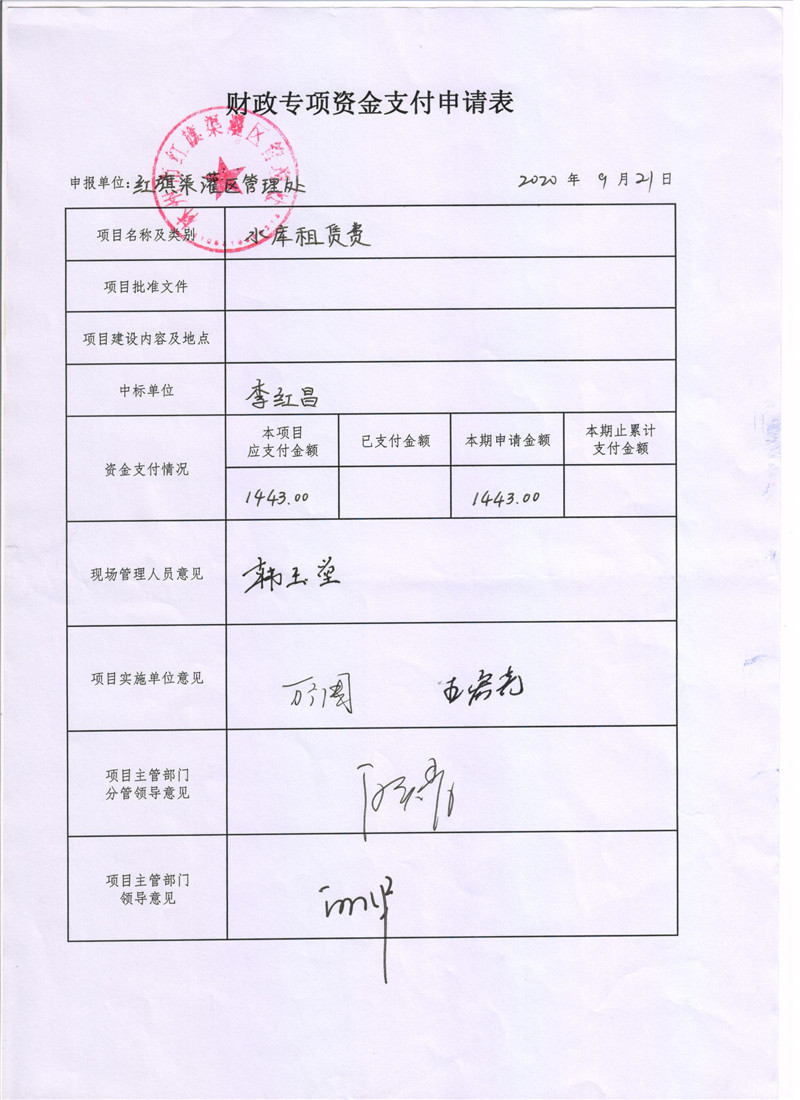 财政专项资金支付申请表
申报单位:红旗渠灌区管理处 2020 年 9 月 21 日
项目名称及类别 水库租赁费
项目批准文件
项目建设内容及地点
中标单位 李红昌
资金支付情况
本项目应支付金额 已支付金额 本期申请金额 本期止累计支付金额
1443.00 1443.00
现场管理人员意见 韩玉堂
项目实施单位意见
项目主管部门
分管领导意见
项目主管部门
领导意见